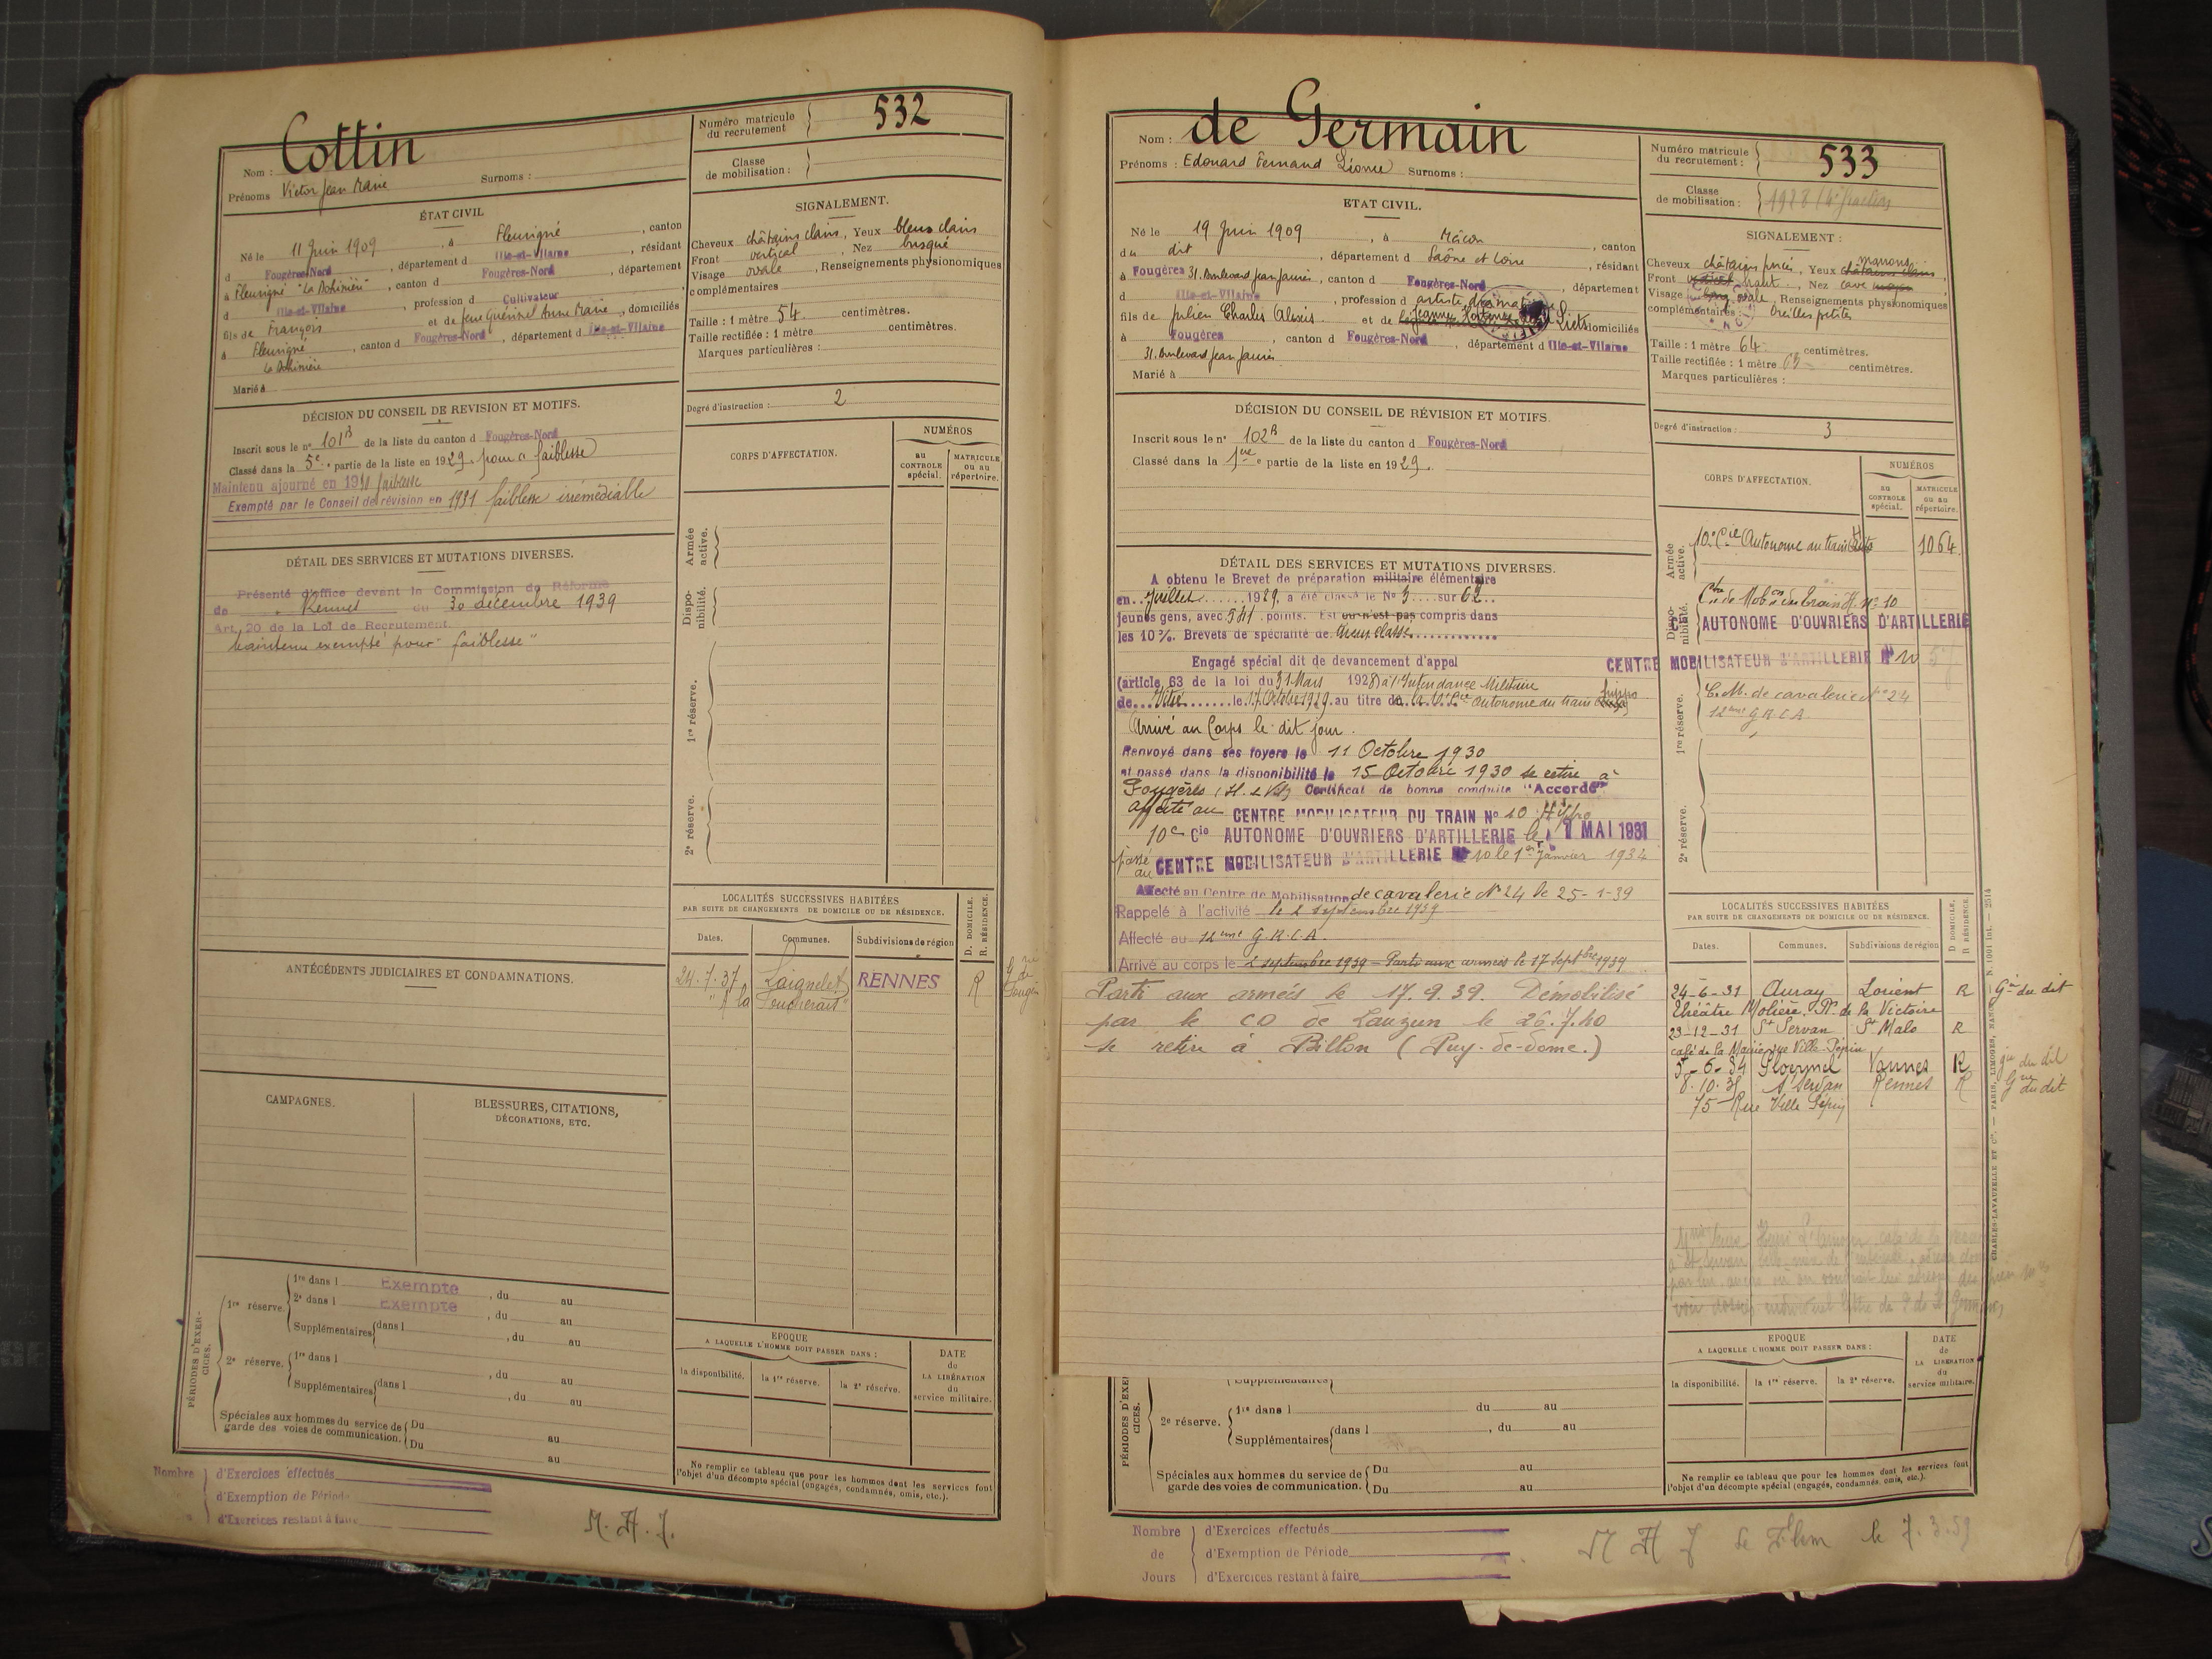 Nom : Cottin
Prénoms Victor Jean Marie Surnoms :
Numéro matricule du recrutement 532
Classe de mobilisation :
ÉTAT CIVIL
Né le 11 Juin 1909, à Fleurigné, canton
d Fougères-Nord, département d Ille-et-Vilaine, résidant
à Fleurigné "La Bohinière", canton d Fougères-Nord, département
d Ille-et-Vilaine, profession d Cultivateur
fils de François et de feue Guérinel Anne Marie, domiciliés
à Fleurigné, canton d Fougères-Nord, département d Ille-et-Vilaine
La Bohinière
Marié à
SIGNALEMENT.
Cheveux châtains clairs, Yeux bleus clairs
Front vertical, Nez busqué
Visage ovale, Renseignements physionomiques
complémentaires
Taille : 1 mètre 54 centimètres.
Taille rectifiée : 1 mètre centimètres.
Marques particulières :
Degré d'instruction : 2
DÉCISION DU CONSEIL DE REVISION ET MOTIFS.
Inscrit sous le nº 101B de la liste du canton d Fougères-Nord
Classé dans la 5e partie de la liste en 1929. pour faiblesse
Maintenu ajourné en 1930 faiblesse
Exempté par le Conseil de révision en 1931 faiblesse irrémédiable
DÉTAIL DES SERVICES ET MUTATIONS DIVERSES.
Présenté d'office devant la Commission de Réforme
de Rennes du 30 décembre 1939
Art. 20 de la Loi de Recrutement.
Maintenu exempté pour "faiblesse"
CORPS D'AFFECTATION.
NUMÉROS
au CONTROLE spécial.
MATRICULE ou au répertoire.
Armée active.
Disponibilité.
1re réserve.
2e réserve.
LOCALITÉS SUCCESSIVES HABITÉES
PAR SUITE DE CHANGEMENTS DE DOMICILE OU DE RÉSIDENCE.
Dates. Communes. Subdivisions de région
D. DOMICILE. R. RÉSIDENCE.
24.7.37 Laignelet RENNES R
"à la Toucherais"
ANTÉCÉDENTS JUDICIAIRES ET CONDAMNATIONS.
CAMPAGNES.
BLESSURES, CITATIONS,
DÉCORATIONS, ETC.
PÉRIODES D'EXERCICES.
1re réserve. 1re dans l Exempte, du au
2e dans l Exempte, du au
Supplémentaires dans l, du au
2e réserve. 1re dans l, du au
Supplémentaires dans l, du au
Spéciales aux hommes du service de garde des voies de communication. Du au
Du au
EPOQUE
A LAQUELLE L'HOMME DOIT PASSER DANS :
la disponibilité. la 1re réserve. la 2e réserve.
DATE de LA LIBÉRATION du service militaire.
Ne remplir ce tableau que pour les hommes dont les services font
l'objet d'un décompte spécial (engagés, condamnés, omis, etc.).
Nombre d'Exercices effectués
d'Exemption de Période
d'Exercices restant à faire
M. A. J.
Nom : de Germain
Prénoms : Edouard Fernand Léonce Surnoms :
Numéro matricule du recrutement : 533
Classe de mobilisation : 1928
ETAT CIVIL.
Né le 19 Juin 1909, à Mâcon, canton
du dit, département d Saône et Loire, résidant
à Fougères 31, boulevard Jean Jaurès, canton d Fougères-Nord, département
d Ille-et-Vilaine, profession d artiste dramatique
fils de Julien Charles Alexis et de Jeanne domiciliés
à Fougères, canton d Fougères-Nord, département d Ille-et-Vilaine
31, boulevard Jean Jaurès
Marié à
SIGNALEMENT :
marrons
Cheveux châtains foncés, Yeux châtains clairs,
Front haut, Nez cave moyen
Visage long ovale, Renseignements physionomiques
complémentaires : Oreilles petites
Taille : 1 mètre 64 centimètres.
Taille rectifiée : 1 mètre 63 centimètres.
Marques particulières :
Degré d'instruction : 3
DÉCISION DU CONSEIL DE RÉVISION ET MOTIFS.
Inscrit sous le nº 102B de la liste du canton d Fougères-Nord
Classé dans la 1ere partie de la liste en 1929.
DÉTAIL DES SERVICES ET MUTATIONS DIVERSES.
A obtenu le Brevet de préparation militaire élémentaire
en Juillet 1929, a été classé le Nº 3 sur 62
jeunes gens, avec 541 points. Est ou n'est pas compris dans
les 10 %. Brevets de spécialité de
Engagé spécial dit de devancement d'appel
(article 63 de la loi du 31 Mars 1928) à l'Intendance Militaire
de Vitré le 17 Octobre 1929 au titre de la 10e Cie Autonome du train hippo
Arrivé au Corps le dit jour.
Renvoyé dans ses foyers le 11 Octobre 1930
et passé dans la disponibilité le 15 Octobre 1930 se retire à
Fougères (I. & V.) Certificat de bonne conduite "Accordé"
Affecté au CENTRE MOBILISATEUR DU TRAIN Nº 10 Hippo
10e Cie AUTONOME D'OUVRIERS D'ARTILLERIE le 1 MAI 1931
passé au CENTRE MOBILISATEUR D'ARTILLERIE Nº 10 le 1er Janvier 1934
Affecté au Centre de Mobilisation de cavalerie Nº 24 le 25-1-39
Rappelé à l'activité le 2 septembre 1939
Affecté au 12eme G.R.C.A.
Arrivé au corps le 2 septembre 1939 - Parti aux armées le 17 Septbre 1939
Parti aux armées le 17.9.39. Démobilisé
par le CD de Lauzun le 26.7.40
se retire à Billon (Puy-de-dome.)
CORPS D'AFFECTATION.
NUMÉROS
au CONTROLE spécial.
MATRICULE ou au répertoire.
Armée active.
10e Cie Autonome au train 1064
Disponibilité.
Ctre de Mobon du train H. Nº 10
Cie AUTONOME D'OUVRIERS D'ARTILLERIE
CENTRE MOBILISATEUR D'ARTILLERIE Nº 10
1re réserve.
C.M. de cavalerie Nº 24
12eme G.R.C.A.
2e réserve.
LOCALITÉS SUCCESSIVES HABITÉES
PAR SUITE DE CHANGEMENTS DE DOMICILE OU DE RÉSIDENCE.
Dates. Communes. Subdivisions de région
D DOMICILE. R RÉSIDENCE.
24-6-31 Auray Lorient R Gie du dit
Théâtre Molière, Pl. de la Victoire
23-12-31 St Servan St Malo R
café de la Mairie rue Ville-Pépin
5-6-34 Ploermel Vannes R gie du dit
8.10.35 St Servan Rennes R Gie du dit
75 Rue Ville Pépin
PÉRIODES D'EXERCICES.
Supplémentaires
2e réserve. 1re dans l du au
Supplémentaires dans l, du au
Spéciales aux hommes du service de garde des voies de communication. Du au
Du au
EPOQUE
A LAQUELLE L'HOMME DOIT PASSER DANS :
la disponibilité. la 1re réserve. la 2e réserve.
DATE de LA LIBÉRATION du service militaire.
Ne remplir ce tableau que pour les hommes dont les services font
l'objet d'un décompte spécial (engagés, condamnés, omis, etc.).
CHARLES-LAVAUZELLE ET Cie. — PARIS, LIMOGES, NANCY
Nombre de Jours d'Exercices effectués
d'Exemption de Période
d'Exercices restant à faire
M A J le 7.3.59